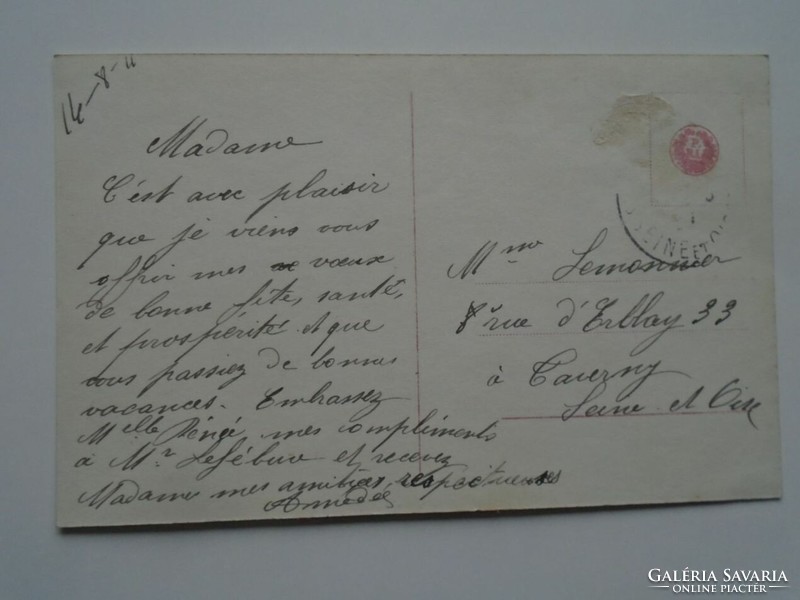 14-8-11
Madame
C'est avec plaisir
que je viens vous
offrir mes vœux
de bonne fête, santé,
et prospérité et que
vous passiez de bonnes
vacances. Embrassez
Melle Réné mes compliments
à Mr Lefébure et recevez
Madame mes amitiés respectueuses
Amédée
Mme Lemonnier
8 rue d'Erblay 33
à Taverny
Seine et Oise
SEINE ET OISE
GALÉRIA SAVARIA
ONLINE PIACTÉR